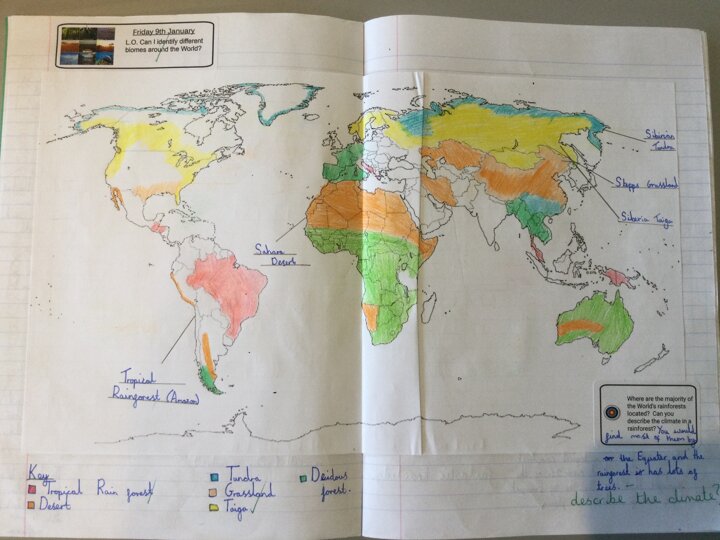 Friday 9th January
L.O. Can I identify different
biomes around the World?
Siberian
Tundra
Stepps Grassland
Siberia Taiga
Sahara
Desert
Tropical
Rainforest (Amazon)
Where are the majority of
the World's rainforests
located? Can you
describe the climate in a
rainforest? You would
find most of them by
or the Equater and the
rainforest it has lots of
trees.
describe the climate?
Key
Tropical Rain forest
Desert
Tundra
Grassland
Taiga
Deidous
forest.